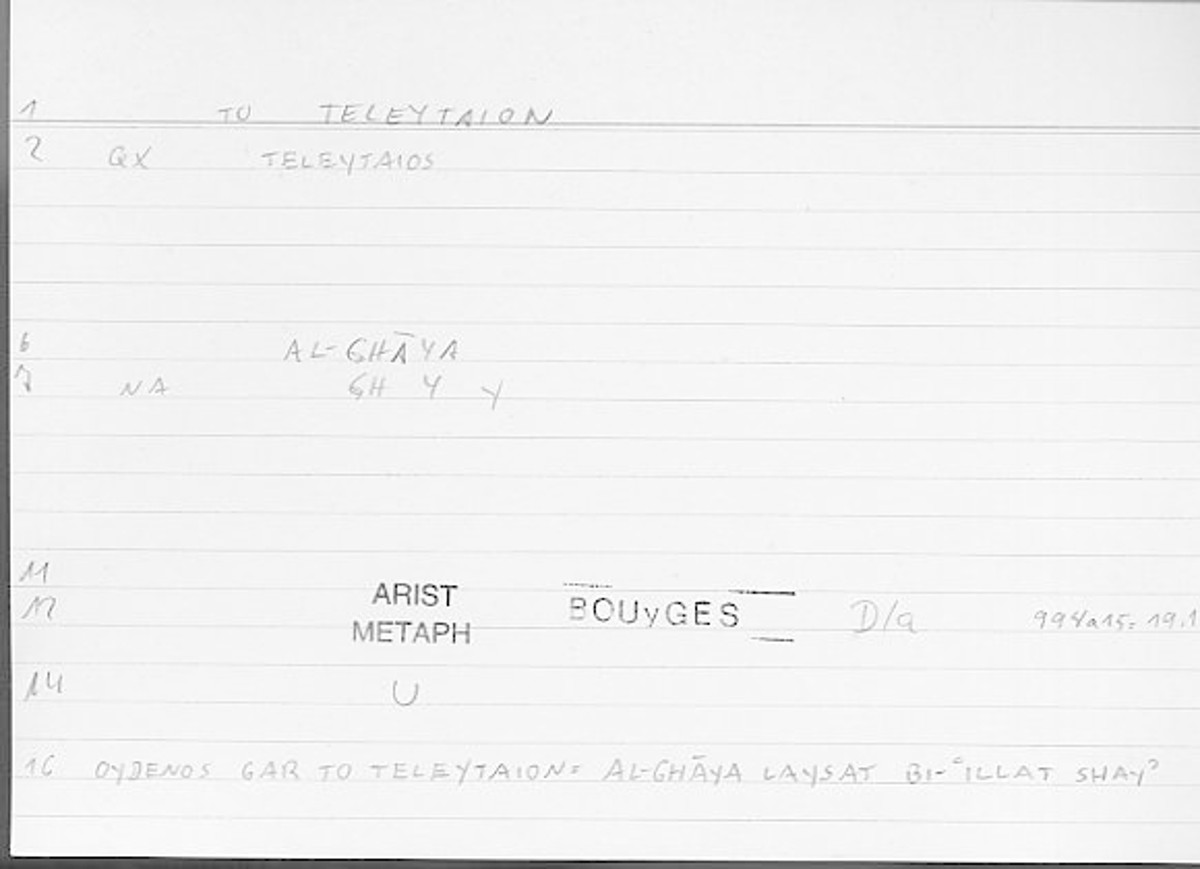 1 TO TELEYTAION
2 QX TELEYTAIOS
6 AL-GHĀYA
7 NA GH Y Y
11
12 ARIST METAPH BOUyGES D/a 994a15: 19.1
14 U
16 OYDENOS GAR TO TELEYTAION= AL-GHĀYA LAYSAT BI-ʿILLAT SHAYʾ